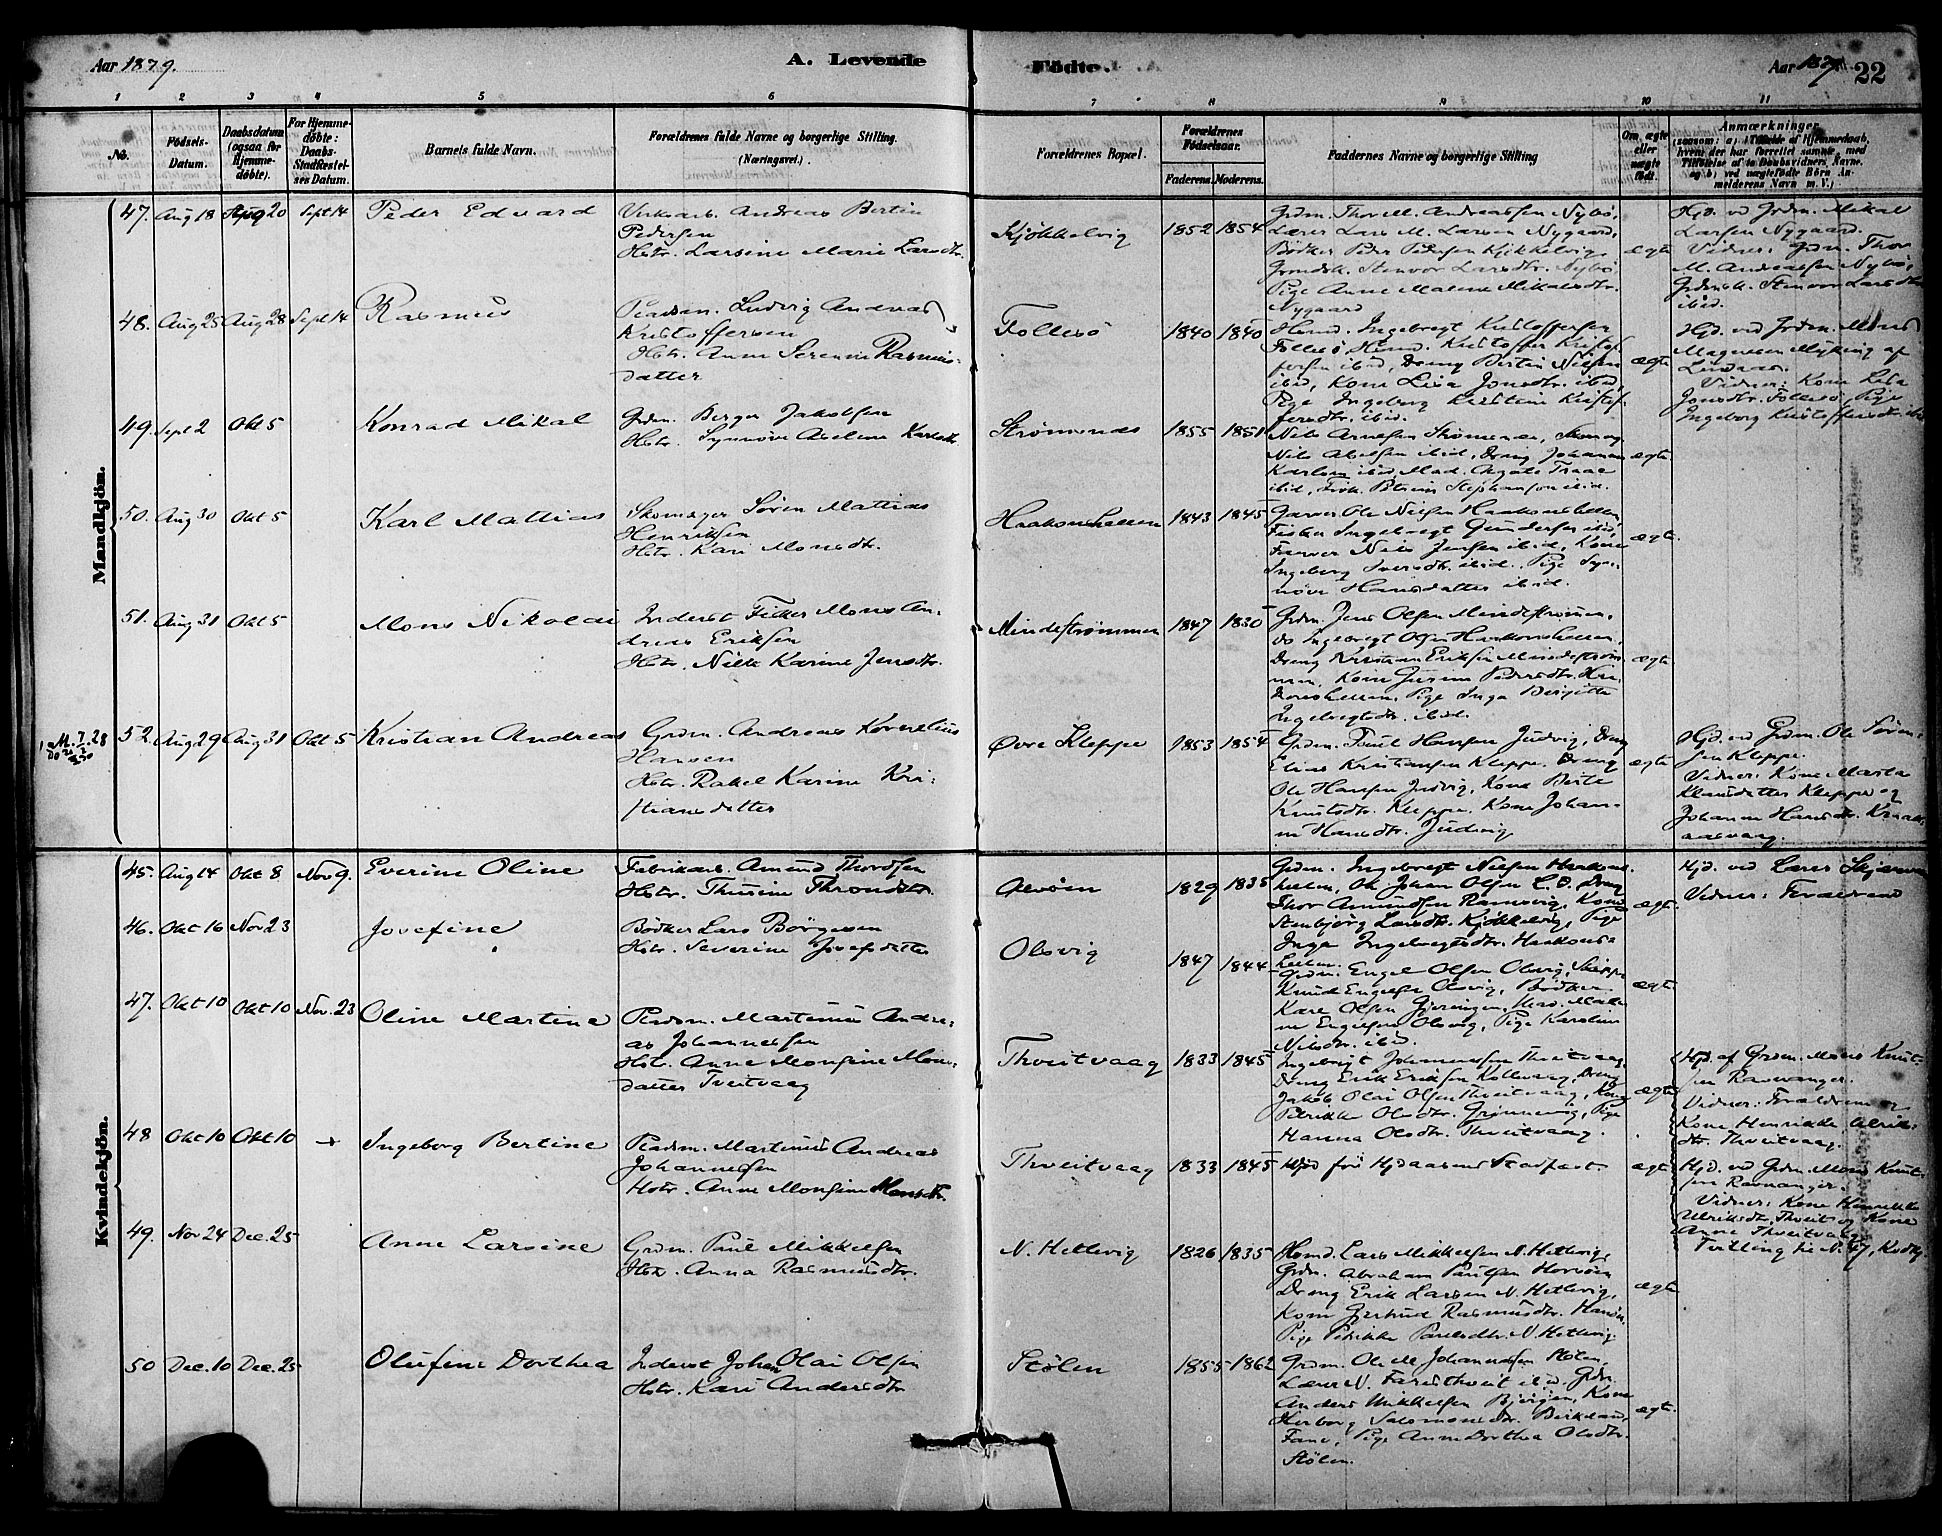 Aar 1879.
A. Levende
Födte.
Aar 1879.
22
1 2 3 4 5 6 7 8 9 10 11
No.
Födsels-
Datum.
Daabsdatum
(ogsaa for
Hjemme-
döbte).
For Hjemme-
döbte:
Daabs-
Stadfæstel-
ses Datum.
Barnets fulde Navn.
Forældrenes fulde Navne og borgerlige Stilling.
(Næringsvei.)
Forældrenes Bopæl.
Forældrenes
Födselsaar.
Faderens. Moderens.
Faddernes Navne og borgerlige Stilling
Om ægte
eller
uægte
födt.
Anmærkninger
(saasom: a) Tilfælde af Hjemmedaab,
hvem der har forrettet samme, med
Tilföielse af to Daabsvidners Navne.
og b) ved uægtefödte Börn An-
melderens Navn m. V.)
Mandkjön.
47. Aug 18 Aug 20 Sept 14
Peder Edvard
Andreas Bertin
Pedersen
Hstr. Larsine Marie Larsdtr.
Kjökkelvig
1852 1854
Grdm. Thor M. Andreassen Nybö,
Lærer Lars M. Larsen Nygaard,
Bödker Peder Pedersen Kjökkelvig
Stenvor Larsdtr. Nybö,
Pige Anne Malene Mikalsdtr.
Nygaard
ægte
Hjd. ved Grdm. Mikal
Larsen Nygaard.
Vidner: Grdm. Thor
M. Andreassen Nybö,
Stenvor Larsdtr
ibid.
48. Aug 25 Aug 28 Sept 14
Rasmus
Pladsm. Ludvig Andreas
Kristoffersen
Hstr. Anne Serenne Rasmus-
datter
Follesö
1840 1840
Husmd. Ingebregt Kristoffersen
Follesö, Husmd. Kristoffer Kristof-
fersen ibid, Dreng Bertin Nilsen
ibid, Kone Lisa Jonsdtr. ibid,
Pige Ingeborg Kirstine Kristof-
fersdtr. ibid.
ægte
Hjd. ved Grdm. Mons
Magnesen Myking af
Lindaas.
Vidner: Kone Lisa
Jonsdtr. Follesö, Pige
Ingeborg Kristoffersdtr. ibid
49. Sept 2 Okt 5
Konrad Mikal
Grdm. Berger Jakobsen
Hstr. Synnöve Abeline Karlsdtr.
Strömsnes
1855 1851
Nils Arnesen Strömsnes,
Nils Abelsen ibid, Dreng Johannes
Karlsen ibid, Mad. Agate
ibid, Frök. Petrine Stephansen ibid.
ægte.
50. Aug 30 Okt 5
Karl Mattias
Skomager Sören Mattias
Henriksen
Hstr. Kari Monsdtr.
Haakonshellen
1843 1845
Garver Ole Nielsen Haakonshellen,
Fisker Ingebregt Gundersen ibid,
Farver Nils Jensen ibid, Kone
Ingeborg Iversdtr. ibid. Pige Syn-
növe Hansdatter ibid.
ægte.
51. Aug 31 Okt 5
Mons Nikolai
Inderst Fisker Mons An-
dreas Eriksen
Hstr. Nille Karine Jensdtr.
Mindeströmmen
1847 1830
Grdm. Jens Olsen Mindeströmmen,
do Ingebregt Olsen Haakonshellen,
Dreng Kristian Eriksen Mindeström-
men, Kone Gurine Pedersdtr. Haa-
konshellen, Pige Inga Birgitte
Ingebregtsdtr. ibid.
ægte.
52. Aug 29 Aug 31 Okt 5
Kristian Andreas
Grdm. Andreas Kornelius
Hansen
Hstr. Rakel Karine Kri-
stiansdatter
Övre Kleppe
1853 1854
Grdm. Poul Hansen Judvig, Dreng
Elias Kristiansen Kleppe, Dreng
Ole Hansen Judvig, Kone Berte
Knutsdtr. Kleppe, Kone Johan-
ne Hansdtr. Judvig
ægte
Hjd. ved Grdm. Ole Sören-
sen Kleppe.
Vidner: Kone Marta
Klausdatter Kleppe og
Johanne Hansdtr.
Kvindekjön.
45. Aug 14 Okt 8. Nov 9.
Everine Oline
Fabrikarb. Amund Thordsen
Hstr. Thurine Throndsdtr.
Alvöen
1829 1835
Grdm. Ingebregt Nielsen Haakons-
hellen, Ole Johan Olsen Dreng
Thor Amundsen Ramsvig, Kone
Stenbjörg Larsdtr. Kjökkelvig, Pige
Inga Ingebregtsdtr. Haakons-
hellen.
ægte.
Hjd. ved Lærer
Vidner: Forældrene
46. Okt 16 Nov 23
Josefine
Bödker Lars Börgesen
Hstr. Severine Josefsdatter
Olsvig
1847 1844
Grdm. Engel Olsen Olsvig, Skipper
Knud Engelsen Olsvig, Bödker
Kare Olsen Gjeringen, Mad. Male-
ne Engelsen Olsvig, Pige Karoline
Nilsdtr. ibid.
ægte.
47. Okt 10 Okt 10 Nov. 23
Oline Martine
Pladsm. Martinus Andre-
as Johannessen
Hstr. Anne Monsine Mons-
datter Tveitvaag
Thveitvaag
1833 1845
Ingebrigt Johannessen Thveitvaag,
Dreng Erik Eriksen Kollevaag, Dreng
Jakob Olai Olsen Thveitvaag, Kone
Petrikke Olsdtr. Grönnevig, Pige
Hanna Olsdtr. Thveitvaag.
ægte
Hjd. af Grdm. Mons Knut-
sen Ravnanger.
Vidner: Forældrene og
Kone Henrikke Ulriks-
dtr. Thveitvaag.
48 Okt 10 Okt 10
Ingeborg Bertine
Pladsm. Martinus Andreas
Johannessen
Hstr. Anne Monsine Monsdtr.
Thveitvaag
1833 1845
Död för Hjdaabens Stadfæst.
ægte
Hjd. ved Grdm. Mons Knut-
sen Ravnanger.
Vidner: Kone Henrikke
Ulriksdtr. Thveit og Kone
Anne Thveitvaag
Tvilling til N. 47,
49. Nov 24 Dec. 25
Anne Larsine
Grdm. Paul Mikkelsen
Hstr. Anna Rasmusdtr.
N. Hetlevig
1826 1835
Husmd. Lars Mikkelsen N. Hetlevig,
Grdm. Abraham Paulsen Horsöen
Dreng Erik Larsen N. Hetlevig,
Kone Gjertrud Rasmusdtr. Hanöen,
Pige Petrikke Paulsdtr. N. Hetlevig
ægte
50 Dec. 10 Dec. 25
Olufine Dorthea
Inderst Johan Olai Olsen
Hstr. Kari Andersdtr.
Stölen
1855 1862
Grdm. Ole M. Johannessen Stölen,
Lærer N. Farestveit ibid, Grdm.
Anders Mikkelsen Bjergöen, Kone
Herborg Salomonsdtr. Birkeland,
Fane, Pige Anne Dorthea Olsdtr.
Stölen.
ægte.